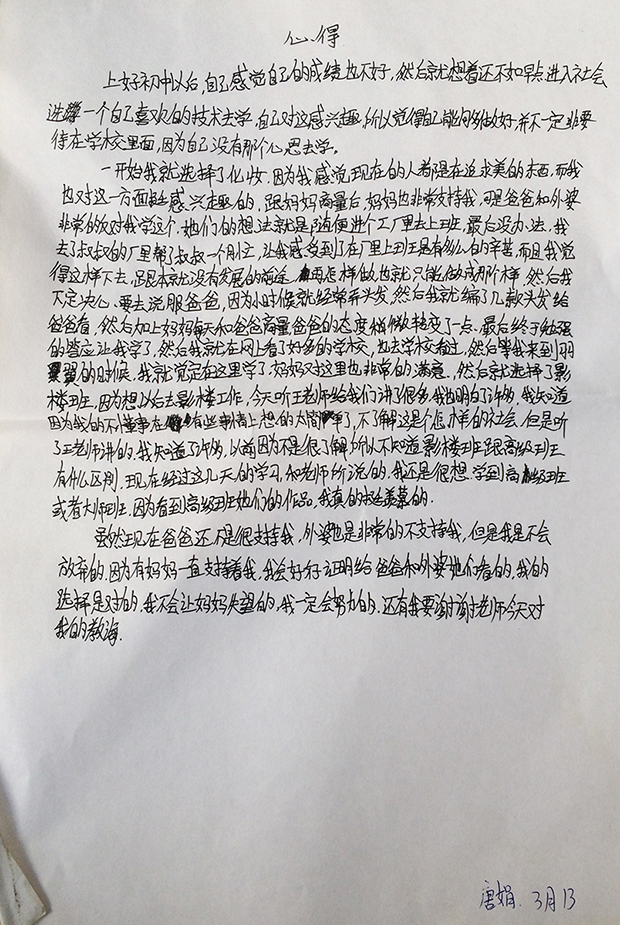 心得
上好初中以后,自己感觉自己的成绩也不好,然后就想着还不如早点进入社会
选择一个自己喜欢的技术去学,自己对这感兴趣,所以觉得自己能够做好,并不一定非要
待在学校里面,因为自己没有那个心思去学。
一开始我就选择了化妆,因为我感觉现在的人都是在追求美的东西,而我
也对这一方面挺感兴趣的,跟妈妈商量后,妈妈也非常支持我,可是爸爸和外婆
非常的反对我学这个,她们的想法就是随便进个工厂里去上班,最后没办法,我
去了叔叔的厂里帮了叔叔一个月忙,让我感受到了在厂里上班是有多么的辛苦,而且我觉
得这样下去,跟本就没有发展的前途,再怎样做也就只能做成那个样,然后我
下定决心,要去说服爸爸,因为小时候就经常弄头发,然后我就编了几款头发给
爸爸看,然后加上妈妈每天和爸爸商量爸爸的态度稍微转变了一点,最后终于勉强
的答应让我学了,然后我就在网上看了好多的学校,也去学校看过,然后等我来到羽
翼的时候,我就觉定在这里学了,妈妈对这里也非常的满意,然后就选择了影
楼班,因为想以后去影楼工作,今天听王老师给我们讲了很多,我也明白了许多,我知道
因为我的不懂事在有些事情上想的太简单了,不了解这是个怎样的社会,但是听
了王老师讲的,我知道了许多,以前因为不是很了解所以不知道影楼班跟高级班班
有什么区别,现在经过这几天的学习,和老师所说的,我还是很想学到高级班
或者大师班,因为看到高级班她们的作品,我真的挺羡慕的。
虽然现在爸爸还不是很支持我,外婆也是非常的不支持我,但是我是不会
放弃的,因为有妈妈一直支持着我,我会好好证明给爸爸和外婆他们看的,我的
选择是对的,我不会让妈妈失望的,我一定会努力的,还有我要谢谢老师今天对
我的教诲.
唐娟. 3月13